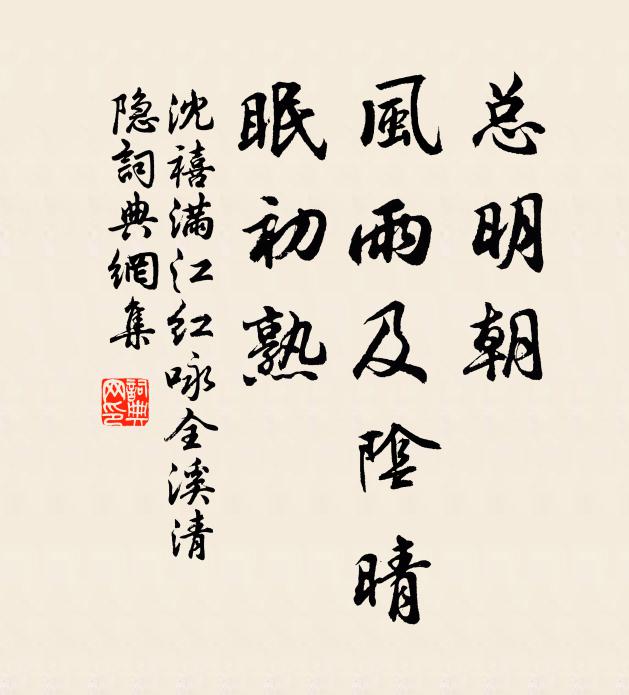 总明朝
風雨及陰晴
眠初熟
沈禧滿江红咏全溪清
隐詞典網集
詞典
网印